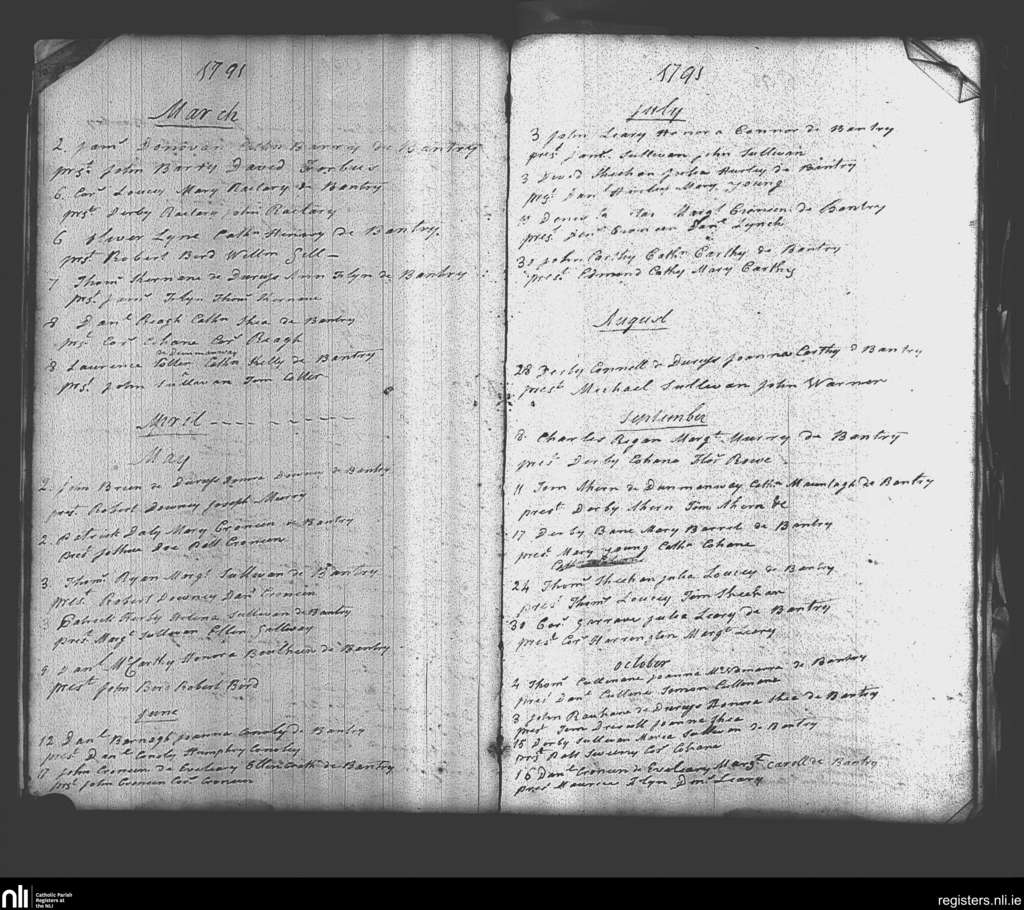 1791
March
2 Jams Donovan Barry de Bantry
prst John Barry David Forbus
6 Cors Loucey Mary Ractary de Bantry
prst Derby Ractary John Ractary
6 Oliver Lyne Cathn Henesy de Bantry
prst Robert Bird Willm Gell
7 Thoms de Durays Ann Flyn de Bantry
prst Jams Flyn Thoms
8 Danl Reagh Cathn Shea de Bantry
prst Cors Cohane Cors Reagh
de Dunmanway
8 Laurence Cotter Cathn Kelly de Bantry
prst John Sullivan Tom Cotter
April
May
2 John Breen de Durays Downey de Bantry
prst Robert Downey Joseph Murry
2 Patrick Daly Mary Croneen de Bantry
prest Joshua Doe Patt Croneen
3 Thoms Ryan Margt Sullivan de Bantry
prest Robert Downey Danl Croneen
Patrick Kerby Helena Sullivan de Bantry
prest Margt Sullivan Ellen Gallway
9 Danl McCarthy Honora de Bantry
prest John Bird Robert Bird
June
12 Danl Barnagh Joanna Conoly de Bantry
prest Danl Conoly Humphry Conoly
17 John Croneen de Eveleary Ellen de Bantry
prst John Croneen Cors Croneen
1791
July
3 John Leary Honora Connor de Bantry
prest Jams Sullivan John Sullivan
3 David Sheehan Julia Hurley de Bantry
prst Danl Mary Young
Margt Croneen de Bantry
prest Croneen Danl Lynch
30 John Carthy Cathn Carthy de Bantry
prest Edmond Cathy Mary Carthy
August
28 Derby Connell de Durays Joanna Carthy de Bantry
prest Michael Sullivan John Warner
September
8 Charles Regan Margt Murry de Bantry
prest Derby Cohane Flor Rowe
11 Tom Ahern de Dunmanway Cathn de Bantry
prest Derby Ahern Tom Ahern de
17 Derby Bane Mary Barret de Bantry
prest Mary Young Cathn Cohane
24 Thoms Sheehan Julia Loucey de Bantry
prest Thoms Loucey Tom Sheehan
30 Cors Garrave Julia Leary de Bantry
prest Cors Harrington Margt Leary
October
2 Thoms Cullenane Joanna de Bantry
prest Danl Cullenane
3 John de Durays Honora Shea de Bantry
prest Tom Driscoll Joanna Shea
15 Derby Sullivan Maria Sullivan de Bantry
prst Patt Sweeny Cors Cohane
16 Danl Croneen de Eveleary Margt Caroll de Bantry
prest Maurice Flyn Leary
nli
Catholic Parish
Registers at
the NLI
registers.nli.ie